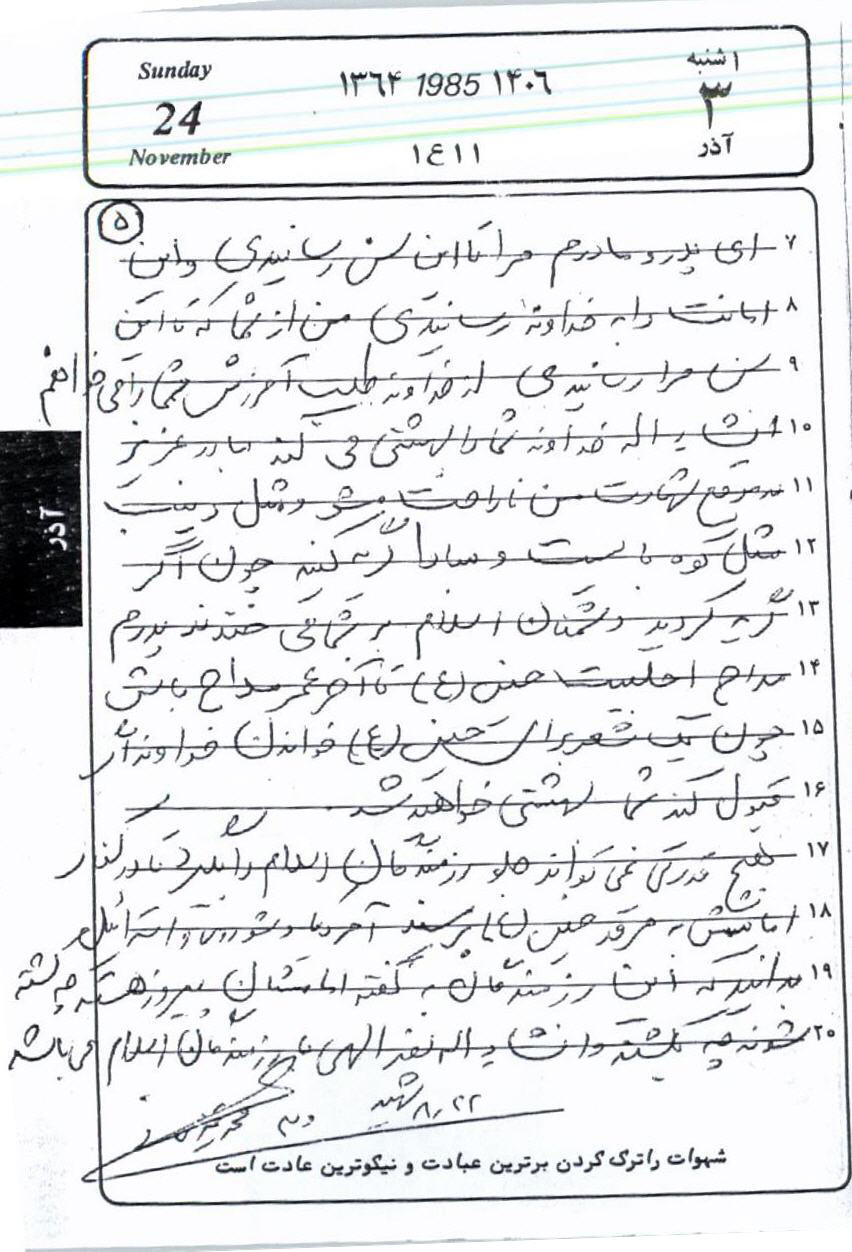 Sunday
24
November
۱۳۶۴ 1985 ۱۴۰۶
۱٤۱۱
۱ شنبه
۳
آذر
۵
۷ ای پدر و مادرم مرا تا این سن رسانیدی و این
۸ امانت را به خداوند رسانیدی من از شما که تا این
۹ سن مرا رسانیدی از خداوند طلب آمرزش شما را می خواهم
۱۰ انشاء اله خداوند شما را بهشتی می کند مادر عزیز
۱۱ شهادت من ناراحت مشو و مثل زینب
۱۲ مثل کوه بایست و مبادا گریه کنید چون اگر
۱۳ گریه کردید دشمنان اسلام بر شما می خندند پدرم
۱۴ مداح اهلبیت حسین (ع) تا آخر عمر مداح باش
۱۵ چون یک شعر برای حسین (ع) خواندن خداوند از
۱۶ قبول کند شما بهشتی خواهید شد
۱۷ هیچ قدرتی نمی تواند جلو رزمندگان اسلام را بگیرد تا در کنار
۱۸ امامشش به مرقد حسین برسند آمریکا و شوروی و اسرائیل
۱۹ بدانید که این رزمندگان به گفته امامشان پیروز هستند چه کشته
۲۰ شوند چه بکشند و انشاء اله نصر الهی با رزمندگان اسلام می باشد
شهید ۸/۲۲
آذر
شهوات را ترک کردن برترین عبادت و نیکوترین عادت است